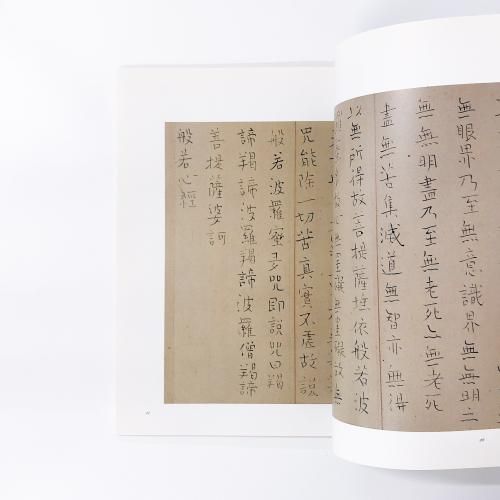 無眼界乃至無意識界無無明亦
無無明盡乃至無老死亦無老死
盡無苦集滅道無智亦無得
以無所得故菩提薩埵依般若波
咒能除一切苦真實不虛故說
般若波羅蜜多咒即說咒曰羯
諦羯諦波羅羯諦波羅僧羯諦
菩提薩婆訶
般若心經